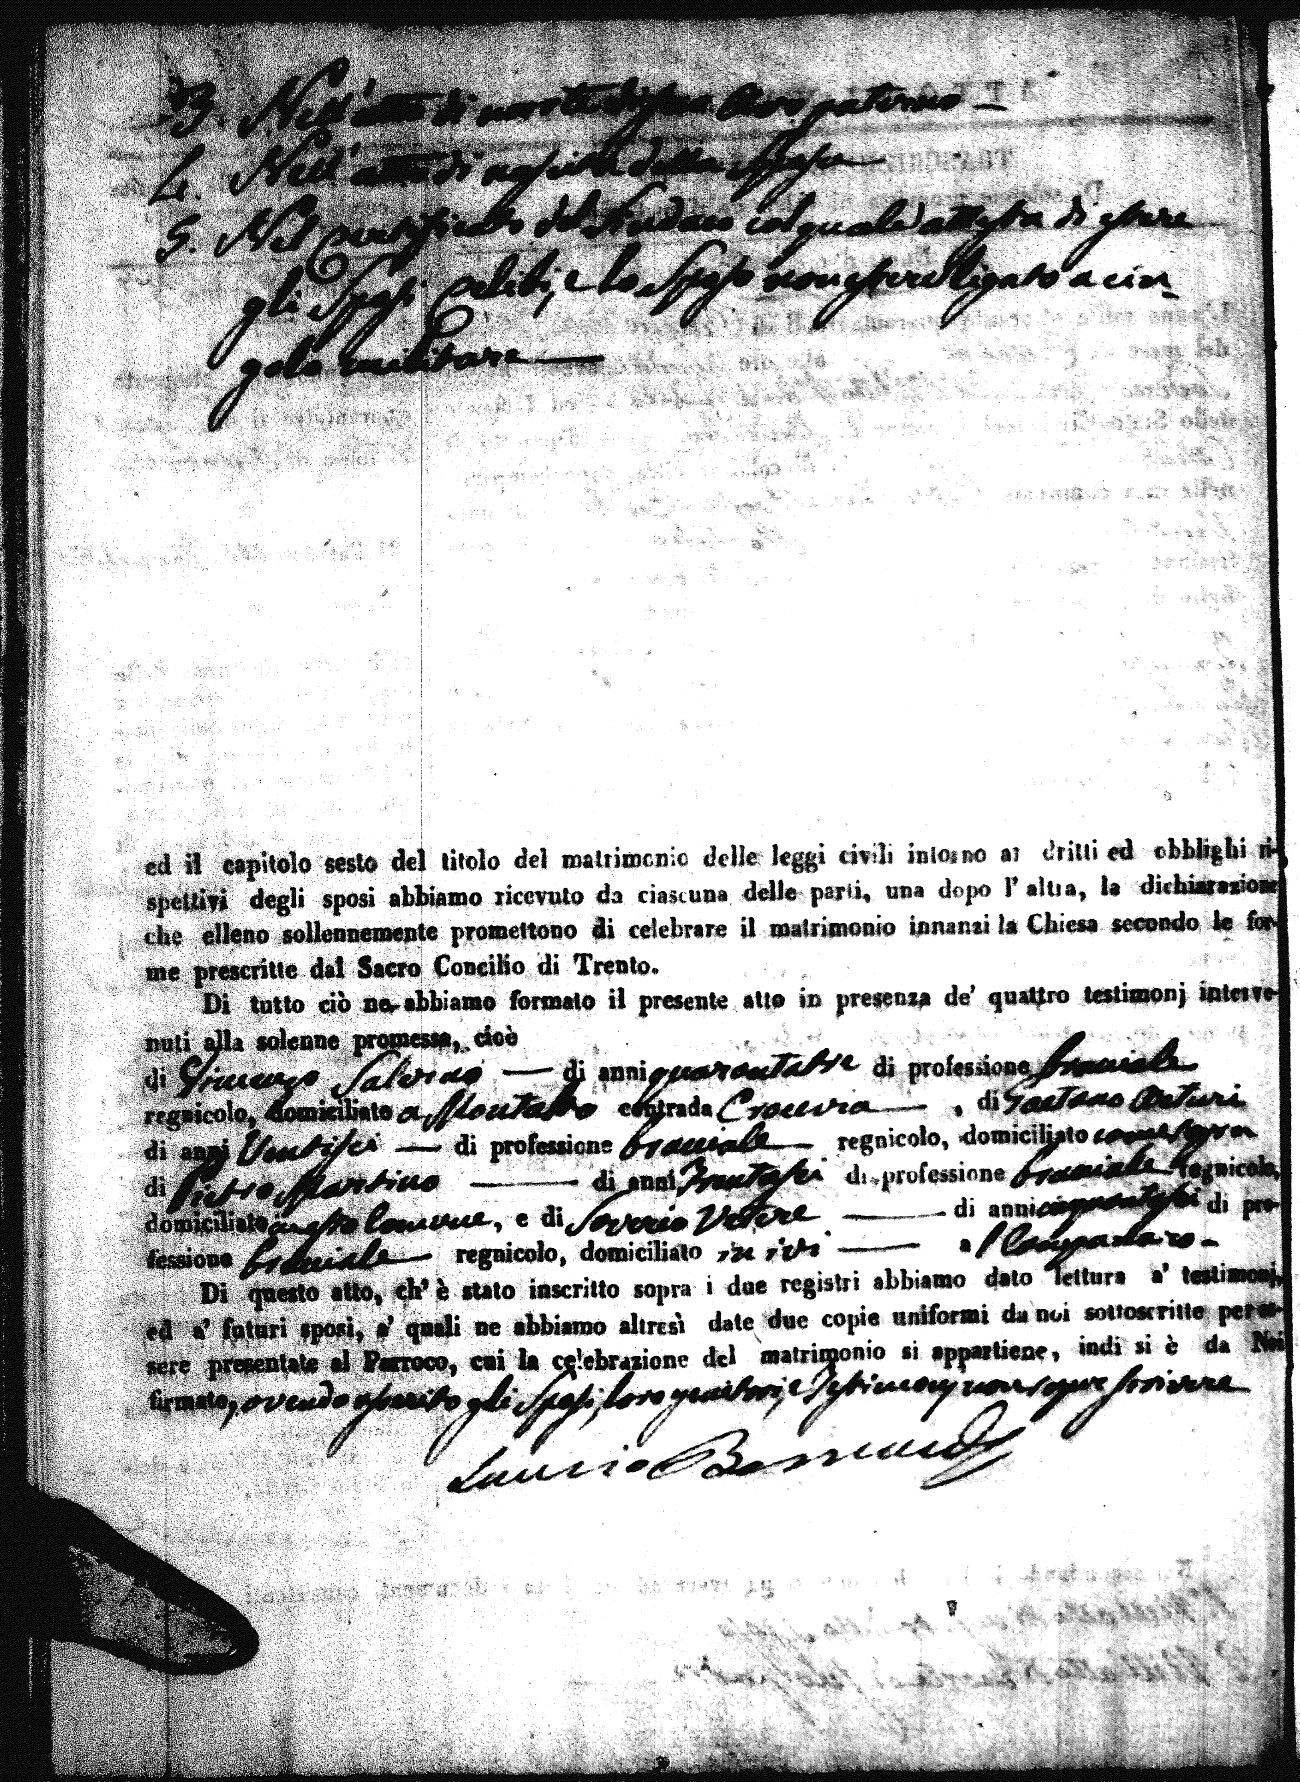 3. Nell'atto di morte di suo Avo paterno —
4. Nell'atto di nascita della Sposa —
5. Nel certificato del Sindaco col quale attesta di essere
gli Sposi celibi, e lo Sposo non essere ligato a cin-
golo militare —
ed il capitolo sesto del titolo del matrimonio delle leggi civili intorno ai dritti ed obblighi ri-
spettivi degli sposi abbiamo ricevuto da ciascuna delle parti, una dopo l'altra, la dichiarazione
che elleno sollennemente promettono di celebrare il matrimonio innanzi la Chiesa secondo le for-
me prescritte dal Sacro Concilio di Trento.
Di tutto ciò ne abbiamo formato il presente atto in presenza de' quattro testimonj interve-
nuti alla solenne promessa, cioè
di Vincenzo Salerno — di anni quarantatre di professione bracciale
regnicolo, domiciliato a contrada — , di Gaetano Arturi
di anni Ventisei — di professione bracciale — regnicolo, domiciliato come sopra
di Pietro Martino — di anni Trentasei di professione bracciale regnicolo,
domiciliato in questo Comune, e di Saverio Vetere — di anni cinquantasei di pro-
fessione bracciale — regnicolo, domiciliato in ivi — a
Di questo atto, ch'è stato inscritto sopra i due registri abbiamo dato lettura a' testimonj,
ed a' futuri sposi, a' quali ne abbiamo altresì date due copie uniformi da noi sottoscritte per es-
sere presentate al Parroco, cui la celebrazione del matrimonio si appartiene, indi si è da Noi
firmato, avendo asserito gli Sposi, loro genitori, e Testimonj non saper scrivere